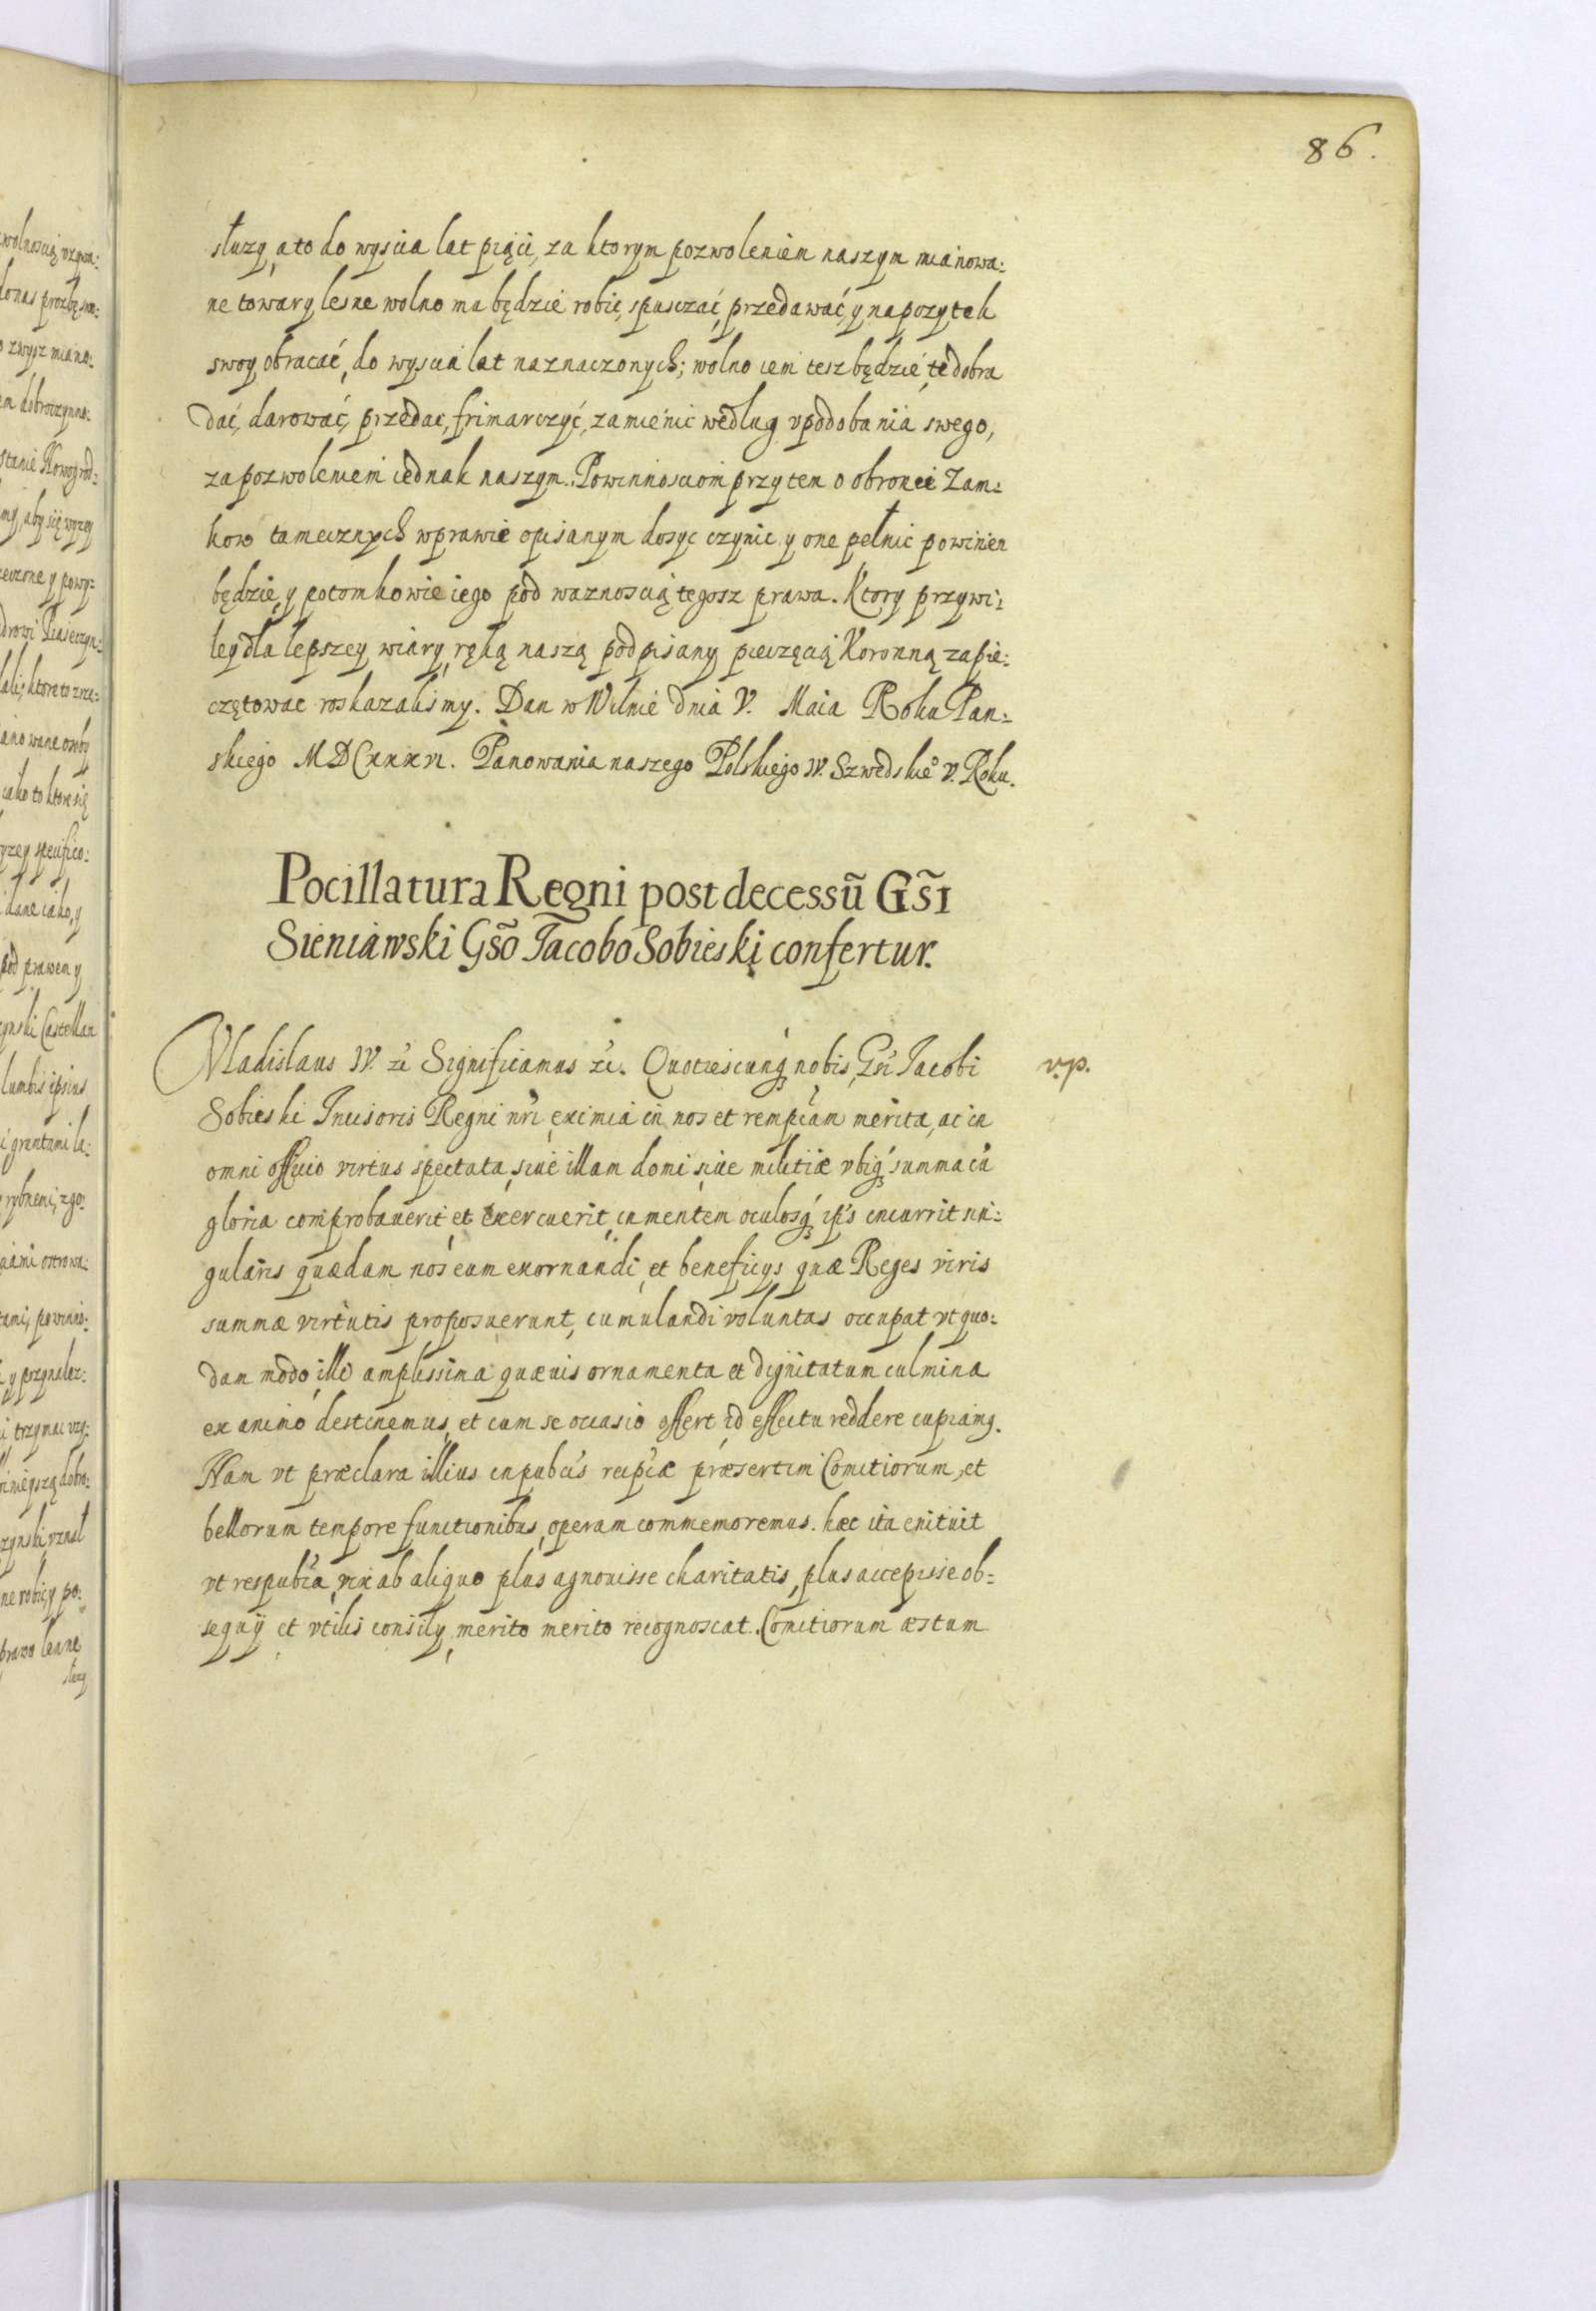 86.
służy, a to do wyscia lat piąci, za ktorym pozwoleniem naszym mianowa:
ne towary lesne wolno mu będzie robic, spusczać, przedawać, y na pozytek
swoy obracać, do wyscia lat naznaczonych; wolno iem tesz będzie te dobra
dać, darować, przedac, frimarczyć, zamienic według vpodobania swego,
za pozwoleniem iednak naszym. Powinnosciom przy tem o obronie Zam:
kow tamecznych w prawie opisanym dosyc czynic y one pełnic powinien
będzie, y potomkowie iego pod waznoscią tegosz prawa. Ktory przywi:
ley dla lepszey wiary, ręką naszą podpisany pieczęcią Koronną zapie:
czętowac roskazalismy. Dan w Wilnie dnia V. Maia Roku Pan:
skiego MDCxxxvi. Panowania naszego Polskiego IV. Szwedskie° V. Roku.
Pocillatura Regni post decessũ Gs̃i
Sieniawski Gs̃o Jacobo Sobieski confertur.
Vladislaus IV. &c Significamus &c. Quotiescunq; nobis, Gsi Jacobi
v.p.
Sobieski Incisoris Regni nr̃i, eximia in nos et rempcam merita, ac in
omni officio virtus spectata, siue illam domi, siue militiæ vbiq; summa cũ
gloria comprobauerit et exercuerit, in mentem oculosq; ip̃s incurrit sin:
gularis quædam nos eum exornandi, et beneficys quæ Reges viris
summæ virtutis proposuerunt, cumulandi voluntas occupat vt quo:
dam modo, illi amplissima quæuis ornamenta et dignitatum culmina
ex animo destinemus, et cum se occasio offert id effectu reddere cupiamq.
Nam vt præclara illius in pubcis reipcæ præsertim Comitiorum, et
bellorum tempore functionibus, operam commemoremus. hæc ita enituit
vt respubca, vix ab aliquo plus agnouisse charitatis, plus accepisse ob=
sequÿ et vtilis consily, merito merito recognoscat. Comitiorum æstum